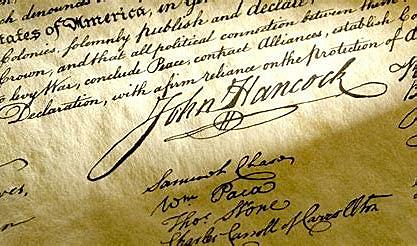 denounce
States of America, in
solemnly publish and declare,
Colonies, and that all political connection between them
Crown, conclude Peace, contract Alliances, establish
to levy War, with a firm reliance on the protection of
Declaration,
John Hancock
Samuel Chase
Wm Paca
Thos Stone
Charles Carroll of Carrollton